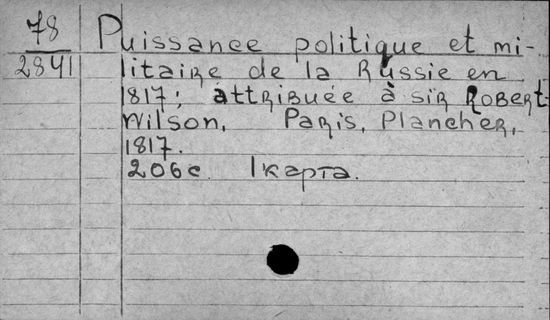 78 Puissance politique et mi-
2841 litaire de la Russie en
1817; attribuée à sir Robert-
Wilson. Paris, Plancher,
1817.
206 с. 1 карта.